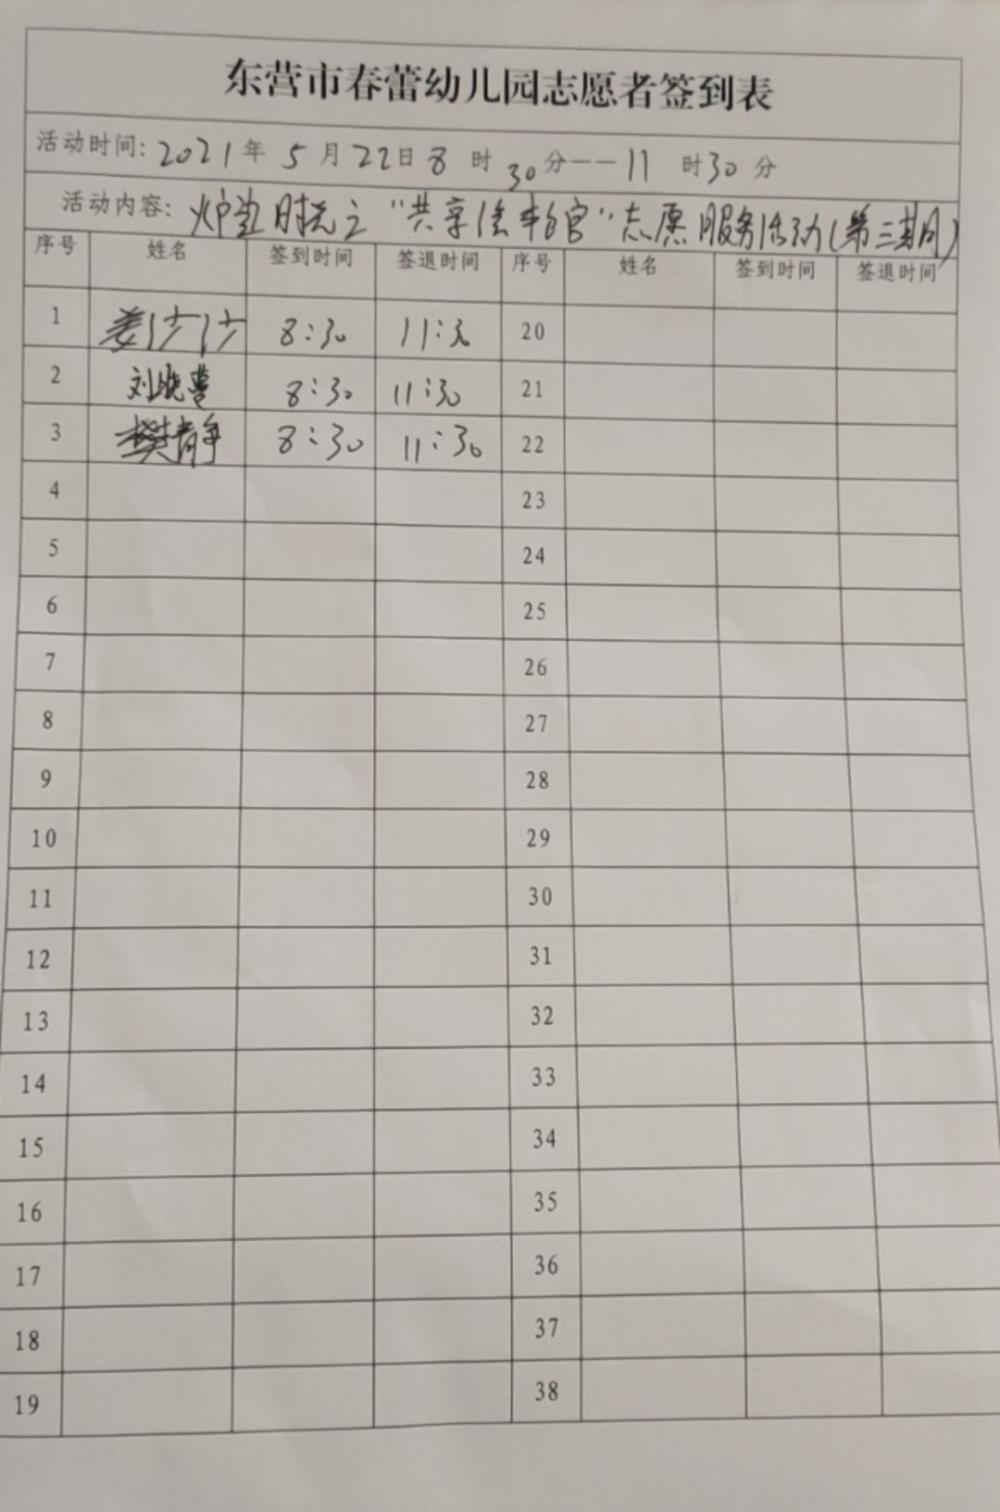 东营市春蕾幼儿园志愿者签到表
活动时间: 2021 年 5 月 22日 8 时 30分——11 时30 分
活动内容: 时光之“共享绘本馆”志愿服务活动(第三期)
序号 姓名 签到时间 签退时间 序号 姓名 签到时间 签退时间
1 姜沙沙 8:30 11:30 20
2 刘晓 8:30 11:30 21
3 樊静 8:30 11:30 22
4 23
5 24
6 25
7 26
8 27
9 28
10 29
11 30
12 31
13 32
14 33
15 34
16 35
17 36
18 37
19 38